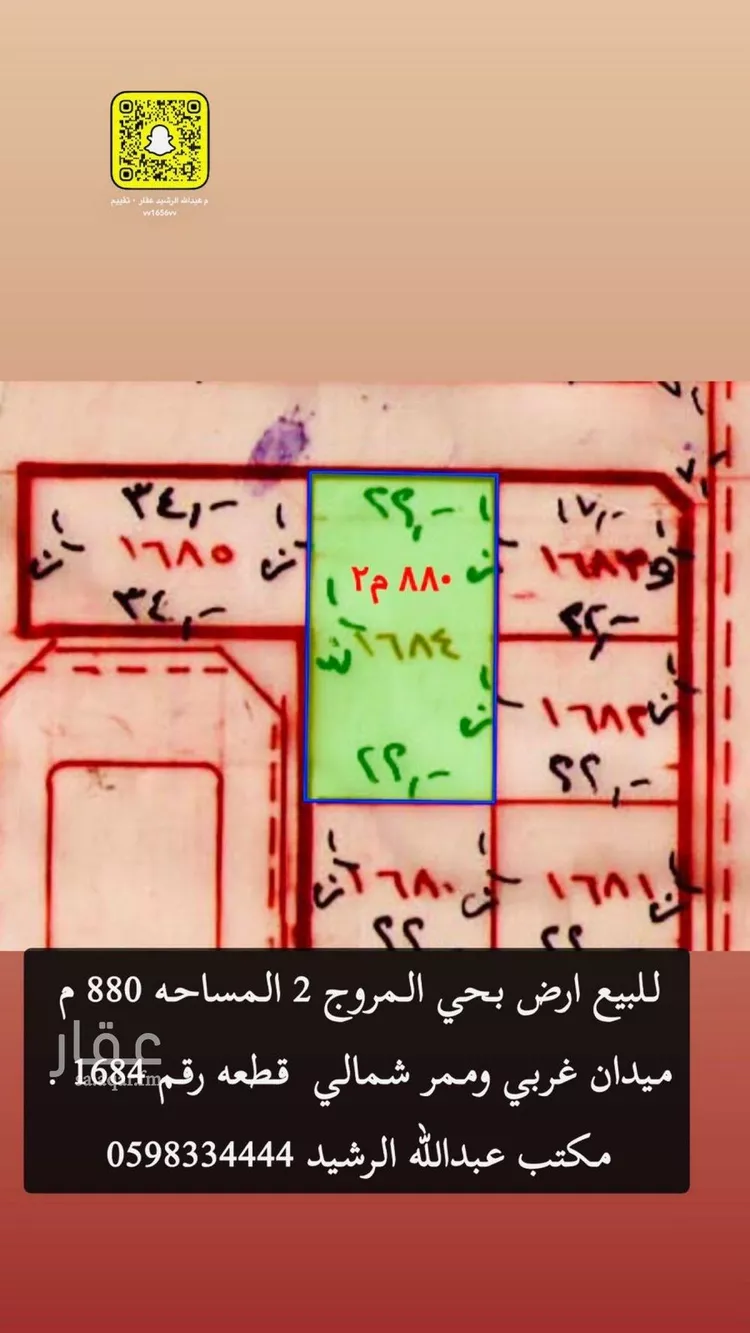 م عبدالله الرشيد عقار - تقييم
vv1656vv
٣٤,-
٢٢,-
١٧,-
١٦٨٥
٨٨٠ م٢
١٦٨٣
٣٤,-
١٦٨٤
٢٢,-
١٦٨٢
٢٢,-
٢٢,-
١٦٨٠
١٦٨١
٢٢
٢٢
للبيع ارض بحي المروج 2 المساحه 880 م
ميدان غربي وممر شمالي قطعه رقم 1684 .
مكتب عبدالله الرشيد 0598334444
عقار
sa.aqar.fm